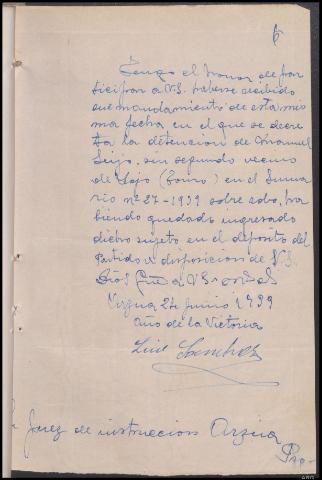 6
Tengo el honor de par
ticipar a V.S. haberse recibido
su mandamiento de esta mis
ma fecha en el que se decre
ta la detencion de Manuel
Seijo, sin segundo vecino
de Lojo (Touro) en el Suma
rio nº 27-1939 sobre robo, ha
biendo quedado ingresado
dicho sujeto en el deposito del
Partido a disposicion de V.S.
Dios gue a V.S.
Arzua 24 Junio 1939
Año de la Victoria
Luis Sanchez
Juez de instruccion Arzua